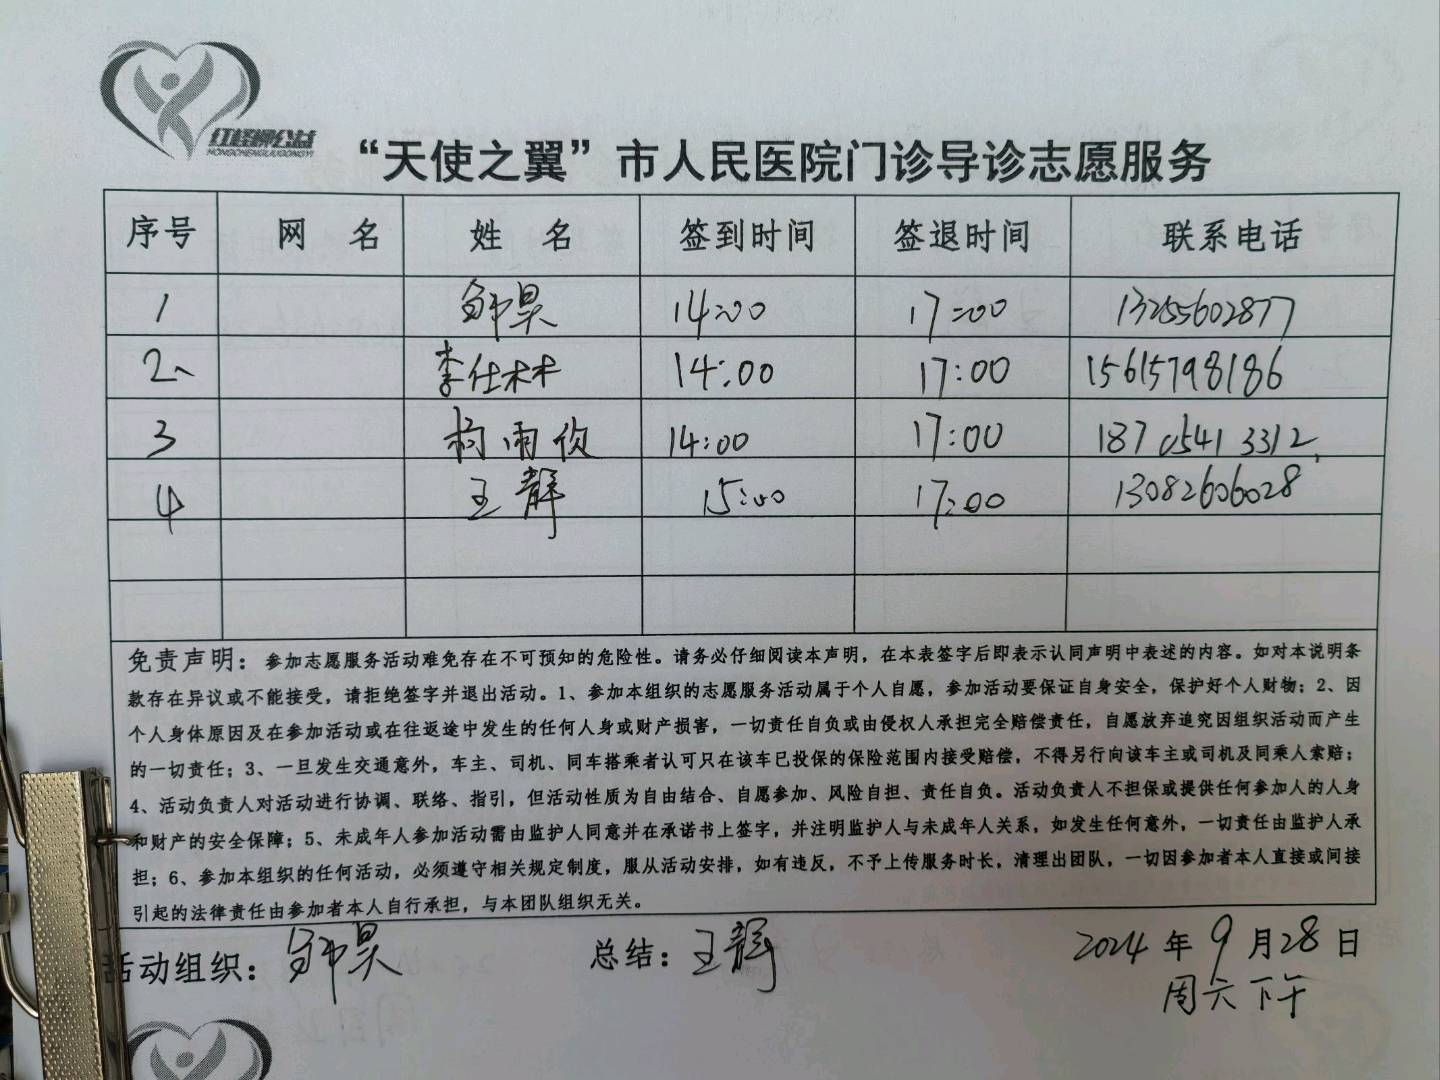 红柽柳公益
HONGCHENGLIUGONGYI
“天使之翼”市人民医院门诊导诊志愿服务
序号 网 名 姓 名 签到时间 签退时间 联系电话
1 14:00 17:00 13255602877
2、 李仕林 14:00 17:00 15615798186
3 柯雨侦 14:00 17:00 187 0541 3312
4 王静 15:00 17:00 13082606028
免责声明：参加志愿服务活动难免存在不可预知的危险性。请务必仔细阅读本声明，在本表签字后即表示认同声明中表述的内容。如对本说明条
款存在异议或不能接受，请拒绝签字并退出活动。1、参加本组织的志愿服务活动属于个人自愿，参加活动要保证自身安全，保护好个人财物；2、因
个人身体原因及在参加活动或在往返途中发生的任何人身或财产损害，一切责任自负或由侵权人承担完全赔偿责任，自愿放弃追究因组织活动而产生
的一切责任；3、一旦发生交通意外，车主、司机、同车搭乘者认可只在该车已投保的保险范围内接受赔偿，不得另行向该车主或司机及同乘人索赔；
4、活动负责人对活动进行协调、联络、指引，但活动性质为自由结合、自愿参加、风险自担、责任自负。活动负责人不担保或提供任何参加人的人身
和财产的安全保障；5、未成年人参加活动需由监护人同意并在承诺书上签字，并注明监护人与未成年人关系，如发生任何意外，一切责任由监护人承
担；6、参加本组织的任何活动，必须遵守相关规定制度，服从活动安排，如有违反，不予上传服务时长，清理出团队，一切因参加者本人直接或间接
引起的法律责任由参加者本人自行承担，与本团队组织无关。
活动组织： 总结：王静 2024 年 9 月 28 日
周六下午